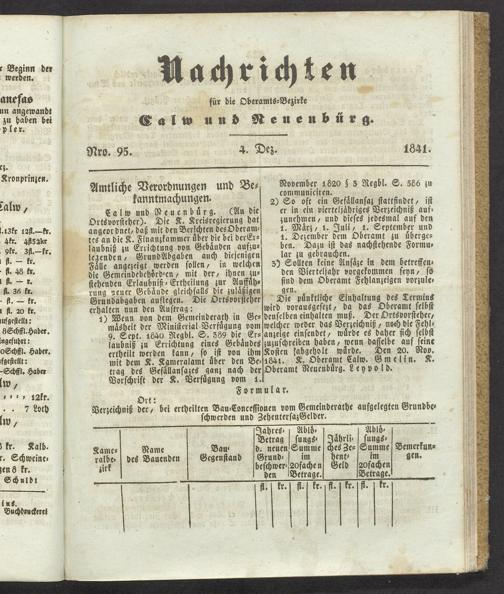 e Beginn der
werden.
anefas
un angewandt
zu haben bei
pler.
Kronprinzen.
Calw,
Nachrichten
für die Oberamts-Bezirke
Calw und Neuenbürg.
Nro. 95.
4. Dez.
1841.
Amtliche Verordnungen und Be-
kanntmachungen.
Calw und Neuenbürg. (An die
Ortsvorsteher). Die K. Kreisregierung hat
angeordnet, daß mit den Berichten des Oberam-
tes an die K. Finanzkammer über die bei der Er-
laubniß zu Errichtung von Gebäuden aufzu-
legenden, GrundAbgaben auch diejenigen
Fälle angezeigt werden sollen, in welchen
die Gemeindebehörden, mit der, ihnen zu-
stehenden Erlaubniß-Ertheilung zur Auffüh-
rung neuer Gebäude gleichfalls die zuläßigen
Grundabgaben auflegen. Die Ortsvorsteher
erhalten nun den Auftrag:
1) Wenn von dem Gemeinderath in Ge-
mäsheit der Ministerial Verfügung vom
9. Sept. 1840 Regbl. S. 389 die Er-
laubniß zu Errichtung eines Gebäudes
ertheilt werden kann, so ist von ihm
mit dem K. Kameralamt über den Be-
trag des Gefällansatzes ganz nach der
Vorschrift der K. Verfügung vom 1.
November 1820 § 3 Regbl. S. 586 zu
communiciren.
2) So oft ein Gefällansaz stattfindet, ist
er in ein vierteljähriges Verzeichniß auf-
zunehmen, und dieses jedesmal auf den
1. März, 1. Juli, 1. September und
1. Dezember dem Oberamt zu überge-
ben. Dazu ist das nachstehende Formu-
lar zu gebrauchen.
3) Sollten keine Ansäze in dem betreffen-
den Vierteljahr vorgekommen seyn, so
sind dem Oberamt Fehlanzeigen vorzule-
gen.
Die pünktliche Einhaltung des Termins
wird vorausgesezt, da das Oberamt selbst
denselben einhalten muß. Der Ortsvorsteher,
welcher weder das Verzeichniß, noch die Fehl-
anzeige einsendet, würde es daher sich selbst
zuzuschreiben haben, wenn dasselbe auf seine
Kosten abgeholt würde. Den 20. Nov.
1841. K. Oberamt Calw. Gmelin. K.
Oberamt Neuenbürg. Leypold.
Formular.
Ort:
Verzeichniß der, bei ertheilten Bau-Concessionen vom Gemeinderathe aufgelegten Grundbe-
schwerden und ZehentersazGelder.
Kame-
ralbe-
zirk
Name
des Bauenden
Bau-
Gegenstand
Jahres-
Betrag
d. neuen
Grund-
beschwer-
den
Ablö-
sungs-
Summe
im
20fachen
Betrage.
Jährli-
ches Ze-
hent-
Geld
Ablö-
sungs-
Summe
im
20fachen
Betrage.
Bemerkun-
gen.
fl. kr. fl. kr. fl. kr. fl. kr.